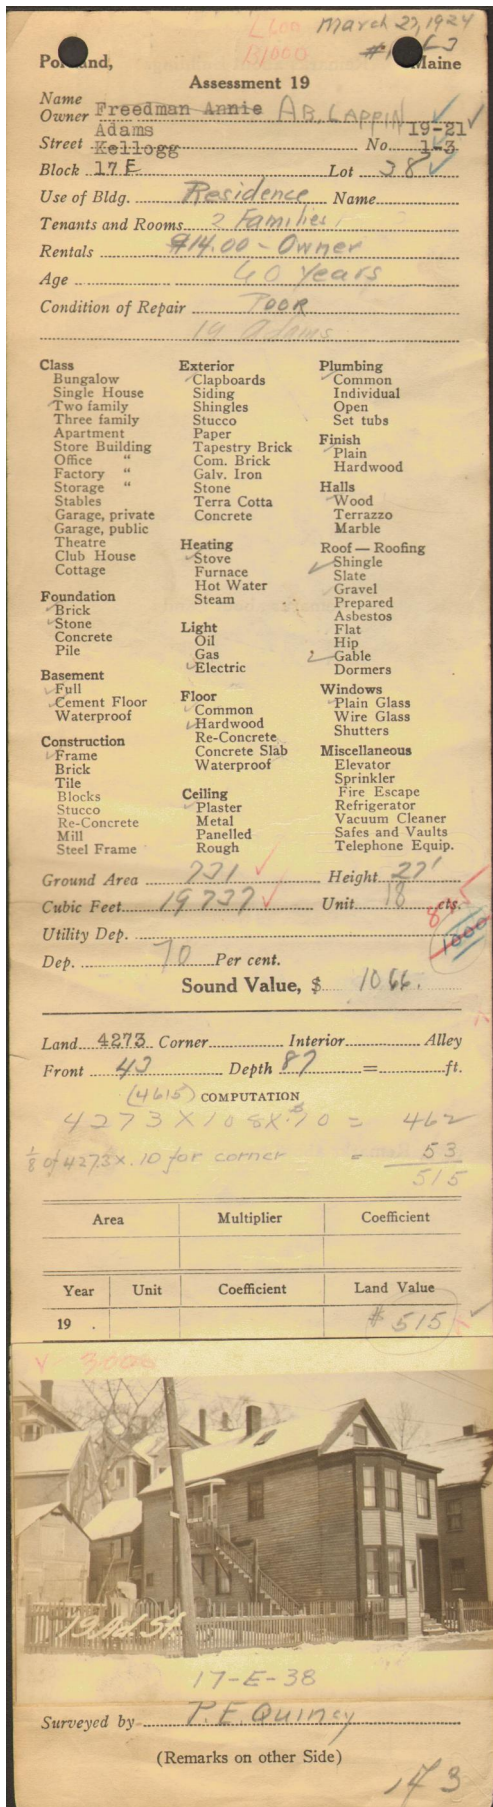 L600 March 27, 1924
B1000
Portland, Maine
Assessment 19
Name
Owner Freedman Annie AB. LAPPIN
Adams 19-21
Street Kellogg No. 1-3
Block 17 E Lot 38
Use of Bldg. Residence Name
Tenants and Rooms 2 Families
Rentals $14.00 - Owner
Age 60 years
Condition of Repair POOR
19 Adams
Class
Bungalow
Single House
Two family
Three family
Apartment
Store Building
Office "
Factory "
Storage "
Stables
Garage, private
Garage, public
Theatre
Club House
Cottage
Foundation
Brick
Stone
Concrete
Pile
Basement
Full
Cement Floor
Waterproof
Construction
Frame
Brick
Tile
Blocks
Stucco
Re-Concrete
Mill
Steel Frame
Exterior
Clapboards
Siding
Shingles
Stucco
Paper
Tapestry Brick
Com. Brick
Galv. Iron
Stone
Terra Cotta
Concrete
Heating
Stove
Furnace
Hot Water
Steam
Light
Oil
Gas
Electric
Floor
Common
Hardwood
Re-Concrete
Concrete Slab
Waterproof
Ceiling
Plaster
Metal
Panelled
Rough
Plumbing
Common
Individual
Open
Set tubs
Finish
Plain
Hardwood
Halls
Wood
Terrazzo
Marble
Roof — Roofing
Shingle
Slate
Gravel
Prepared
Asbestos
Flat
Hip
Gable
Dormers
Windows
Plain Glass
Wire Glass
Shutters
Miscellaneous
Elevator
Sprinkler
Fire Escape
Refrigerator
Vacuum Cleaner
Safes and Vaults
Telephone Equip.
Ground Area 731 Height 27'
Cubic Feet 19737 Unit 18 cts.
875
1000
Utility Dep.
Dep. 70 Per cent.
Sound Value, $ 1066.
Land 4273 Corner Interior Alley
Front 43 Depth 87 = ft.
(4615) COMPUTATION
4273 X 108 X .10 = 462
1/8 of 4273 x .10 for corner = 53
515
Area Multiplier Coefficient
Year Unit Coefficient Land Value
19 . $ 515
Y 3000
19 Ad. St
17-E-38
Surveyed by P.E. Quincy
(Remarks on other Side)
173